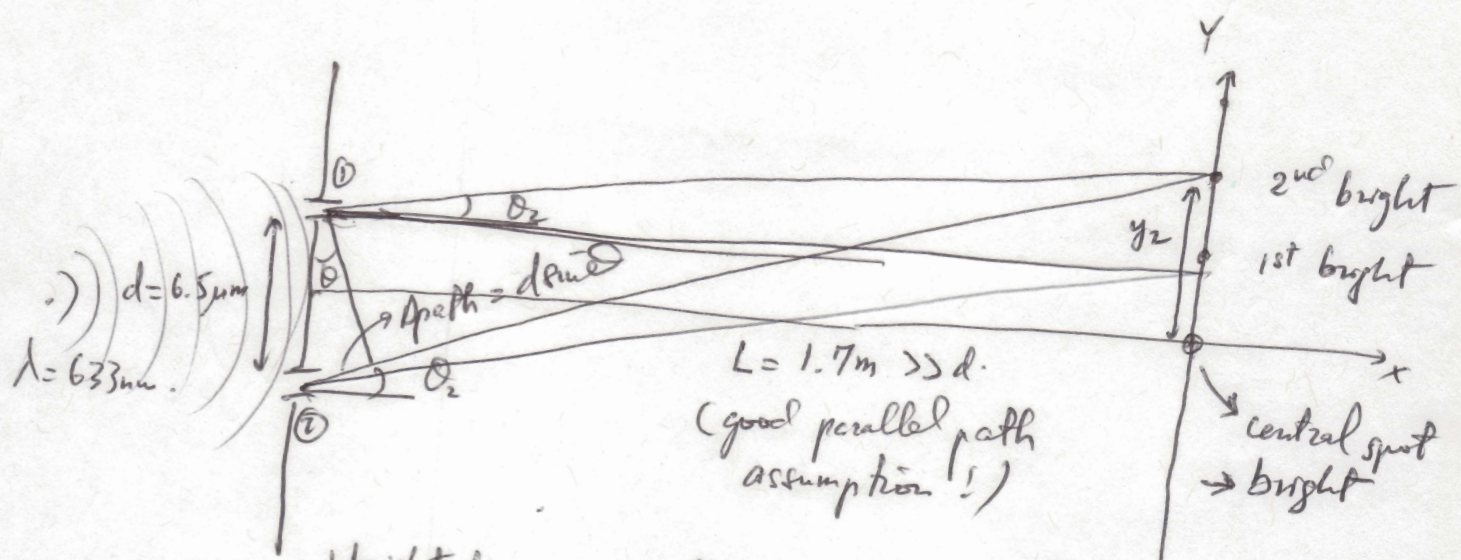 Y
①
θ₂
2nd bright
y₂
1st bright
d = 6.5 μm
θ
Δpath = d sinθ
λ = 633 nm.
θ₂
L = 1.7m >> d.
x
②
(good parallel path
assumption!)
central spot
→ bright